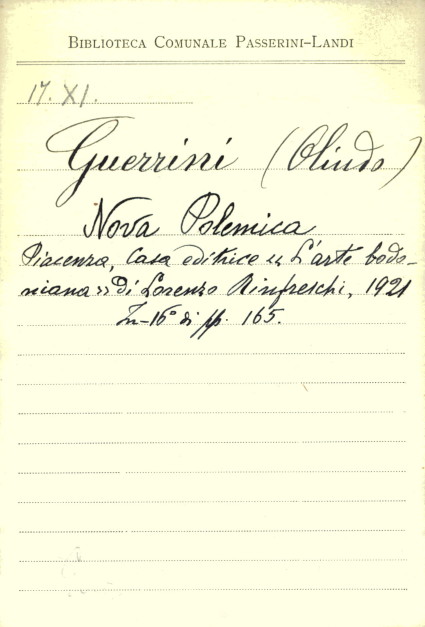 BIBLIOTECA COMUNALE PASSERINI-LANDI
17. XI.
Guerrini (Olindo)
Nova Polemica
Piacenza, Casa editrice « L'arte bodo-
niana » di Lorenzo Rinfreschi, 1921
In-16° di pp. 165.